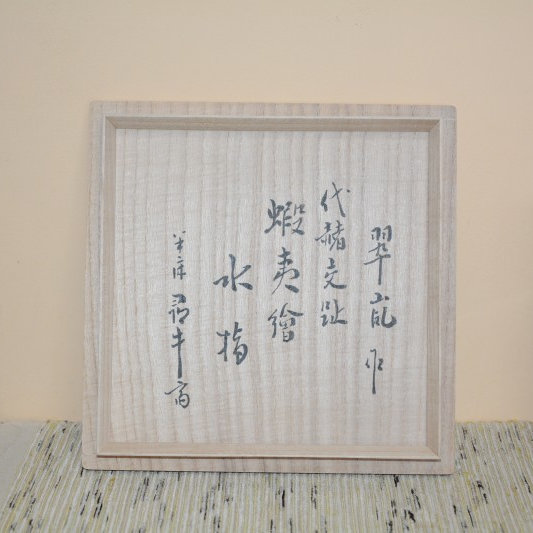 翠嵐作
代赭交趾
蝦夷繪
水指
半床
尋牛斎